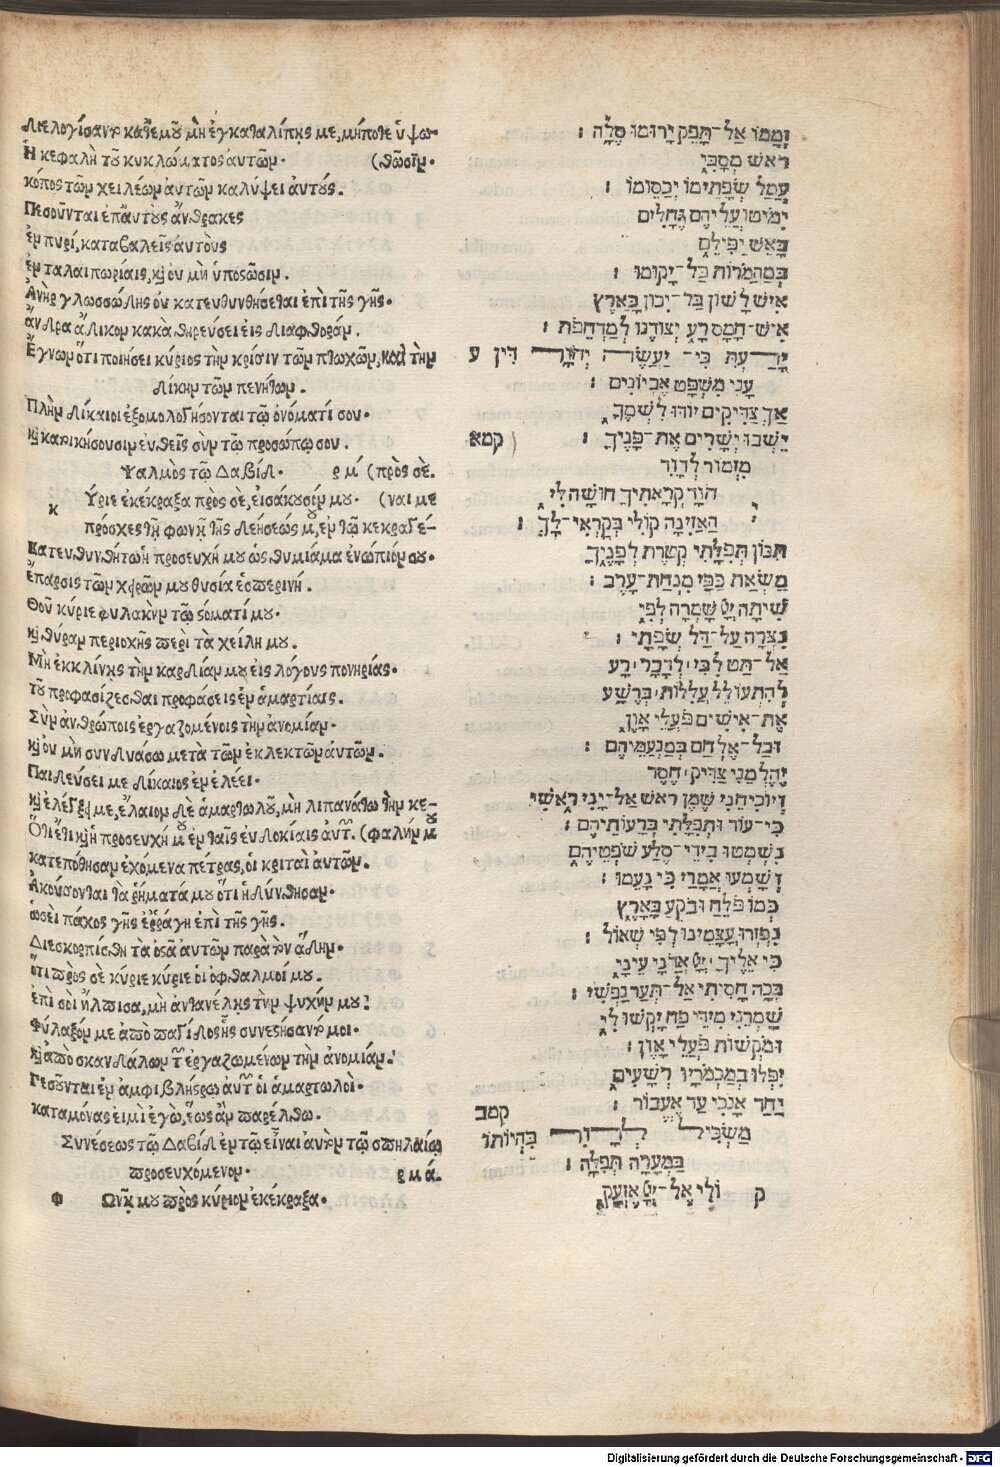 Διελογίσαντο κατ' ἐμοῦ μὴ ἐγκαταλίπῃς με, μήποτε ὑψω-
Ἡ κεφαλὴ τοῦ κυκλώματος αὐτῶν· (θῶσιν·
κόπος τῶν χειλέων αὐτῶν καλύψει αὐτούς.
Πεσοῦνται ἐπ' αὐτοὺς ἄνθρακες
ἐν πυρί, καταβαλεῖς αὐτοὺς
ἐν ταλαιπωρίαις, καὶ οὐ μὴ ὑποστῶσιν.
Ἀνὴρ γλωσσώδης οὐ κατευθυνθήσεται ἐπὶ τῆς γῆς·
ἄνδρα ἄδικον κακὰ θηρεύσει εἰς διαφθοράν.
Ἔγνων ὅτι ποιήσει κύριος τὴν κρίσιν τῶν πτωχῶν, καὶ τὴν
δίκην τῶν πενήτων.
Πλὴν δίκαιοι ἐξομολογήσονται τῷ ὀνόματί σου·
καὶ κατοικήσουσιν εὐθεῖς σὺν τῷ προσώπῳ σου.
Ψαλμὸς τῷ Δαβίδ. ρμ΄ (πρὸς σέ.
κ Ύριε ἐκέκραξα πρὸς σέ, εἰσάκουσόν μου· (ναι με
πρόσχες τῇ φωνῇ τῆς δεήσεώς μου, ἐν τῷ κεκραγέ-
Κατευθυνθήτω ἡ προσευχή μου ὡς θυμίαμα ἐνώπιόν σου·
ἔπαρσις τῶν χειρῶν μου θυσία ἑσπερινή.
Θοῦ κύριε φυλακὴν τῷ στόματί μου·
καὶ θύραν περιοχῆς περὶ τὰ χείλη μου.
Μὴ ἐκκλίνῃς τὴν καρδίαν μου εἰς λόγους πονηρίας·
τοῦ προφασίζεσθαι προφάσεις ἐν ἁμαρτίαις.
Σὺν ἀνθρώποις ἐργαζομένοις τὴν ἀνομίαν·
καὶ οὐ μὴ συνδυάσω μετὰ τῶν ἐκλεκτῶν αὐτῶν.
Παιδεύσει με δίκαιος ἐν ἐλέει·
καὶ ἐλέγξει με, ἔλαιον δὲ ἁμαρτωλοῦ, μὴ λιπανάτω τὴν κε-
Ὅτι ἔτι καὶ ἡ προσευχή μου ἐν ταῖς εὐδοκίαις αὐτῶν. (φαλήν μου
κατεπόθησαν ἐχόμενα πέτρας, οἱ κριταὶ αὐτῶν.
Ἀκούσονται τὰ ῥήματά μου ὅτι ἡδύνθησαν·
ὡσεὶ πάχος γῆς ἐῤῥάγη ἐπὶ τῆς γῆς.
Διεσκορπίσθη τὰ ὀστᾶ αὐτῶν παρὰ τὸν ᾅδην·
ὅτι πρὸς σὲ κύριε κύριε οἱ ὀφθαλμοί μου.
ἐπὶ σοὶ ἤλπισα, μὴ ἀντανέλῃς τὴν ψυχήν μου:
Φύλαξόν με ἀπὸ παγίδος ἧς συνεστήσαντό μοι·
καὶ ἀπὸ σκανδάλων τῶν ἐργαζομένων τὴν ἀνομίαν.
Πεσοῦνται ἐν ἀμφιβλήστρῳ αὐτῶν οἱ ἁμαρτωλοί·
καταμόνας εἰμὶ ἐγὼ, ἕως ἂν παρέλθω.
Συνέσεως τῷ Δαβὶδ ἐν τῷ εἶναι αὐτὸν τῷ σπηλαίῳ
προσευχόμενον· ρμά.
Φ Ωνῇ μου πρὸς κύριον ἐκέκραξα·
זְמָמוֹ אַל־תָּפֵק יָרוּמוּ סֶלָה :
רֹאשׁ מְסִבָּי
עֲמַל שְׂפָתֵימוֹ יְכַסּוּמוֹ :
יִמִּיטוּ עֲלֵיהֶם גֶּחָלִים
בָּאֵשׁ יַפִּילֵם
בְּמַהֲמֹרוֹת בַּל־יָקוּמוּ :
אִישׁ לָשׁוֹן בַּל־יִכּוֹן בָּאָרֶץ
אִישׁ־חָמָס רָע יְצוּדֶנּוּ לְמַדְחֵפֹת :
יָדַעְתִּ כִּי־יַעֲשֶׂה יְהוָה דִּין ע
עָנִי מִשְׁפַּט אֶבְיוֹנִים :
אַךְ צַדִּיקִים יוֹדוּ לִשְׁמֶךָ
יֵשְׁבוּ יְשָׁרִים אֶת־פָּנֶיךָ : קמא
מִזְמוֹר לְדָוִד
הוָה קְרָאתִיךָ חוּשָׁה לִּי
י הַאֲזִינָה קוֹלִי בְּקָרְאִי־לָךְ :
תִּכּוֹן תְּפִלָּתִי קְטֹרֶת לְפָנֶיךָ
מַשְׂאַת כַּפַּי מִנְחַת־עָרֶב :
שִׁיתָה יְיָ שָׁמְרָה לְפִי
נִצְּרָה עַל־דַּל שְׂפָתָי :
אַל־תַּט לִבִּי לְדָבָר רָע
לְהִתְעוֹלֵל עֲלִלוֹת בְּרֶשַׁע
אֶת־אִישִׁים פֹּעֲלֵי אָוֶן
וּבַל־אֶלְחַם בְּמַנְעַמֵּיהֶם :
יֶהֶלְמֵנִי צַדִּיק חֶסֶד
וְיוֹכִיחֵנִי שֶׁמֶן רֹאשׁ אַל־יָנִי רֹאשִׁי
כִּי־עוֹד וּתְפִלָּתִי בְּרָעוֹתֵיהֶם :
נִשְׁמְטוּ בִידֵי־סֶלַע שֹׁפְטֵיהֶם
וְשָׁמְעוּ אֲמָרַי כִּי נָעֵמוּ :
כְּמוֹ פֹלֵחַ וּבֹקֵעַ בָּאָרֶץ
נִפְזְרוּ עֲצָמֵינוּ לְפִי שְׁאוֹל :
כִּי אֵלֶיךָ יְיָ אֲדֹנָי עֵינָי
בְּכָה חָסִיתִי אַל־תְּעַר נַפְשִׁי :
שָׁמְרֵנִי מִידֵי פַח יָקְשׁוּ לִי
וּמֹקְשׁוֹת פֹּעֲלֵי אָוֶן :
יִפְּלוּ בְמַכְמֹרָיו רְשָׁעִים
יַחַד אָנֹכִי עַד אֶעֱבוֹר : קמב
מַשְׂכִּיל לְדָוִד בִּהְיוֹתוֹ
בַמְּעָרָה תְפִלָּה :
ק וֹלִי אֶל־יְיָ אֶזְעָק
Digitalisierung gefördert durch die Deutsche Forschungsgemeinschaft - DFG